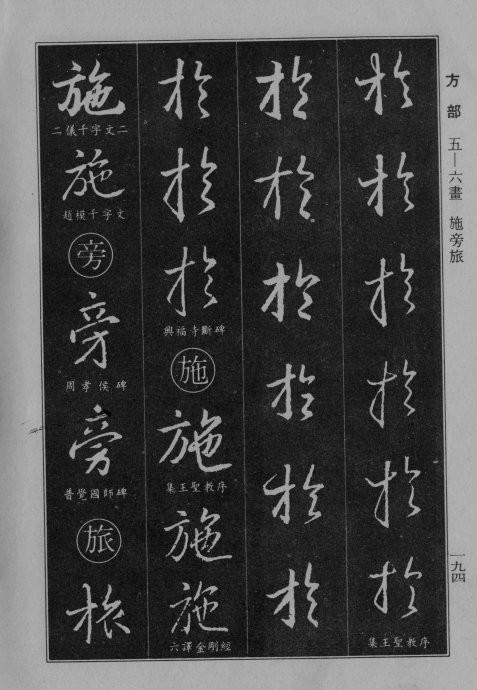 方部 五—六畫 施旁旅
一九四
於
於
於
於
於
於
集王聖教序
於
於
於
於
於
於
於
於
於
興福寺斷碑
施
施
集王聖教序
施
施
六譯金剛經
施
二儀千字文二
施
趙模千字文
旁
旁
周孝侯碑
旁
普覺國師碑
旅
旅